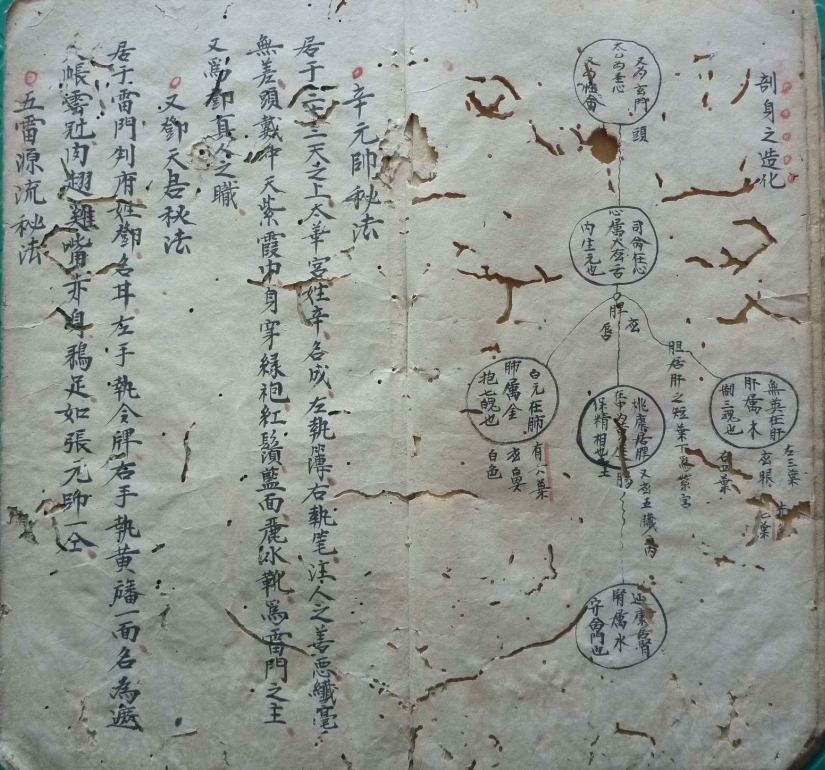 剖身之造化
頭
又為玄門
太山為
司命在心
心屬火在舌
內生元也
脾
唇
胆居肝之短葉下為紫宮
無英在肝
肝屬木
制三魂也
左三葉
在眼
右四葉
白元在肺
肺屬金
抱七魄也
有六葉
在鼻
白色
桃康居脾
保精相也
又在五臟之內
腎屬水
守命門也
辛元帥秘法
居于三十三天之上太華宮姓辛名成左執簿右執筆注人之善惡纖毫
無差頭戴中天紫霞巾身穿綠袍紅鬚藍面鹿冰靴為雷門之主
又為鄧真人之職
又鄧天君秘法
居于雷門判府姓鄧名耳左手執令牌右手執黃旛一面名為
帳雲社肉翅雞嘴赤身鴉足如張元帥一仝
五雷源流秘法